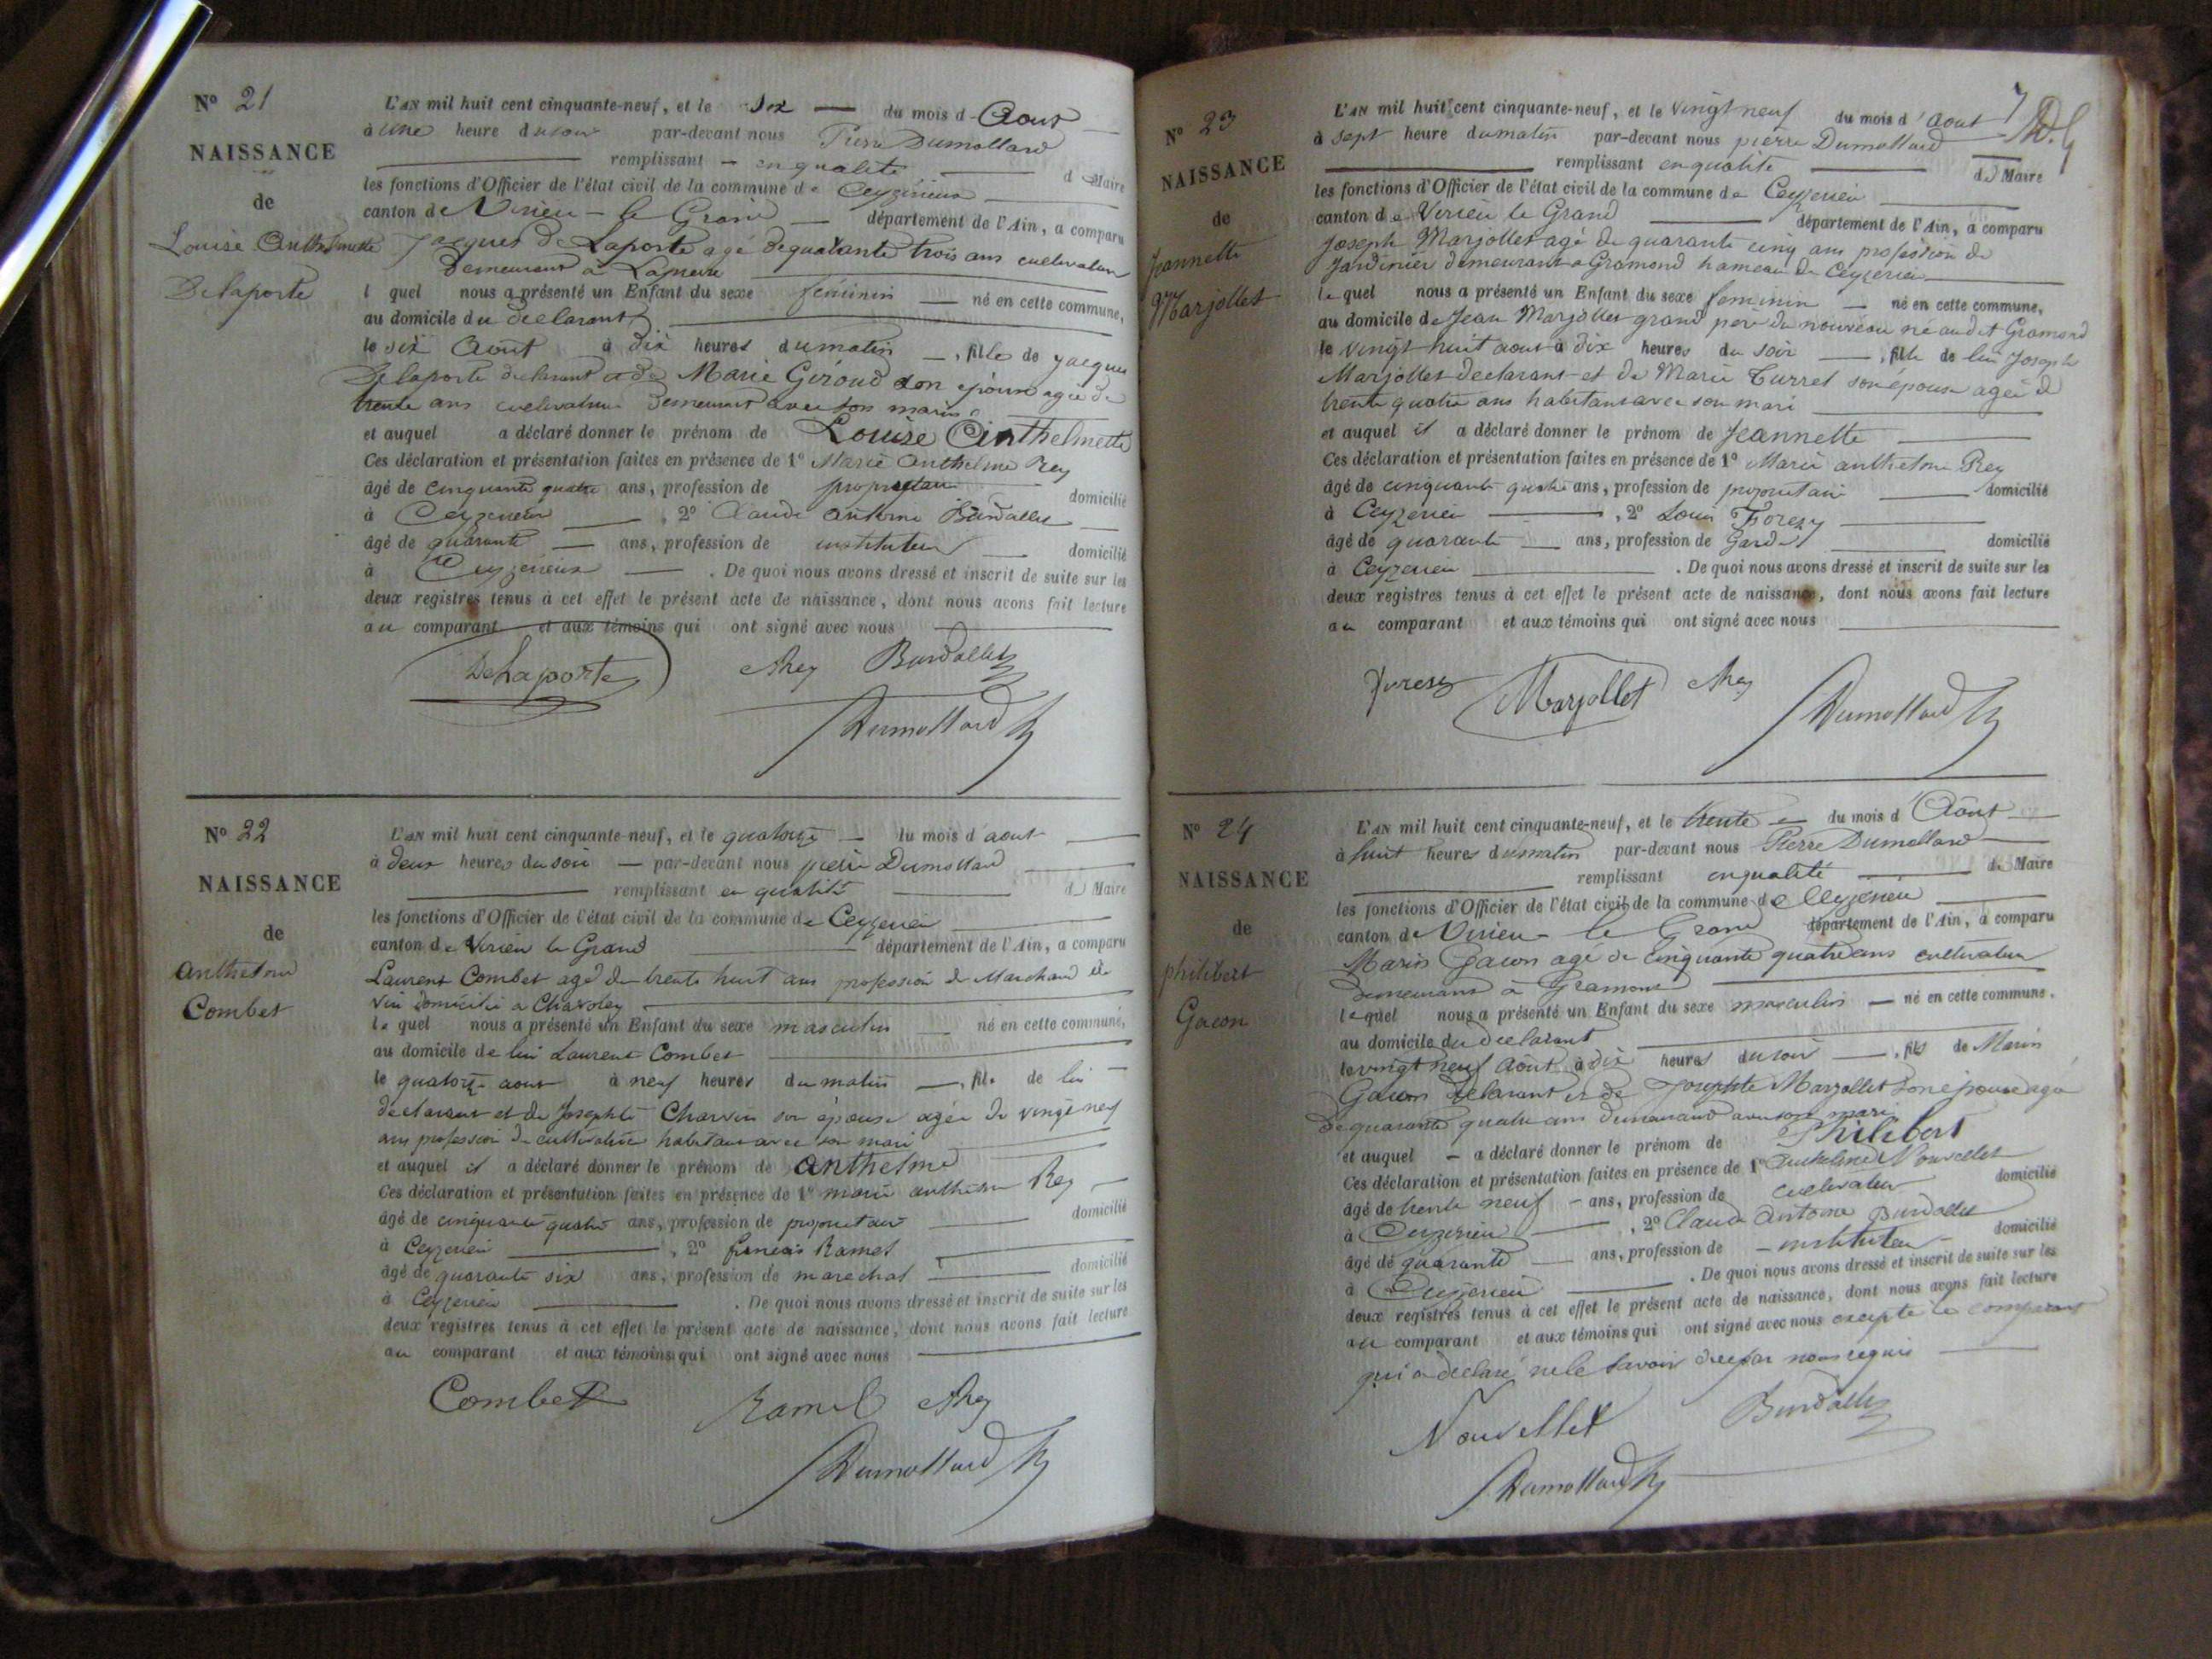 N° 21
NAISSANCE
de
Louise Anthelmette
Delaporte
L'AN mil huit cent cinquante-neuf, et le Six du mois d Aout
à une heure du soir par-devant nous Pierre Dumollard
remplissant en qualité d Maire
les fonctions d'Officier de l'état civil de la commune de Ceyzerieux
canton de Virieu-le Grand département de l'Ain, a comparu
Jacques de Laporte agé de quarante trois ans cultivateur
demeurant à
l quel nous a présenté un Enfant du sexe féminin né en cette commune,
au domicile du declarant
le six Août à dix heures du matin , fille de jacques
Delaporte declarant et de Marie Giroud son épouse agée de
trente ans demeurant avec son mari
et auquel a déclaré donner le prénom de Louise Anthelmette
Ces déclaration et présentation faites en présence de 1° Marie Anthelme Rey
âgé de cinquante quatre ans, profession de propriétaire domicilié
à Ceyzerieu , 2° Claude Antoine Burdallet
âgé de quarante ans, profession de instituteur domicilié
à Ceyzerieux . De quoi nous avons dressé et inscrit de suite sur les
deux registres tenus à cet effet le présent acte de naissance, dont nous avons fait lecture
au comparant et aux témoins qui ont signé avec nous
DeLaporte Rey Burdallet
Dumollard
N° 22
NAISSANCE
de
Anthelme
Combet
L'AN mil huit cent cinquante-neuf, et le quatorze du mois d'aout
à deux heures du soir par-devant nous pierre Dumollard
remplissant en qualité de Maire
les fonctions d'Officier de l'état civil de la commune de Ceyzerieu
canton de Virieu le Grand département de l'Ain, a comparu
Laurent Combet agé de trente huit ans profession de Marchand de
vin domicilié a Chavoley
le quel nous a présenté un Enfant du sexe masculin né en cette commune,
au domicile de lui Laurent Combet
le quatorze aout à neuf heures du matin , fils de lui
declarant et de Josephte Charvin son épouse agée de vingt neuf
ans profession de cultivatrice habitant avec son mari
et auquel il a déclaré donner le prénom de Anthelme
Ces déclaration et présentation faites en présence de 1° marie anthelme Rey
âgé de cinquante quatre ans, profession de proprietaire domicilié
à Ceyzerieu , 2° francois Ramel
âgé de quarante six ans, profession de marechal domicilié
à Ceyzerieu . De quoi nous avons dressé et inscrit de suite sur les
deux registres tenus à cet effet le présent acte de naissance, dont nous avons fait lecture
au comparant et aux témoins qui ont signé avec nous
Combet Ramel Rey
Dumollard
7
N° 23
NAISSANCE
de
Jeannette
Marjollet
L'AN mil huit cent cinquante-neuf, et le Vingt neuf du mois d'Aout
à sept heure du matin par-devant nous pierre Dumollard
remplissant en qualité de Maire
les fonctions d'Officier de l'état civil de la commune de Ceyzerieu
canton de Virieu le Grand département de l'Ain, a comparu
Joseph Marjollet agé de quarante cinq ans profession de
Jardinier demeurant a Gramond hameau de Ceyzerieu
le quel nous a présenté un Enfant du sexe feminin né en cette commune,
au domicile de Jean Marjollet grand pere du nouveau né audit Gramond
le Vingt huit aout à dix heures du soir , fille de lui Joseph
Marjollet declarant et de Marie Turrel son épouse agée de
trente quatre ans habitant avec son mari
et auquel il a déclaré donner le prénom de Jeannette
Ces déclaration et présentation faites en présence de 1° Marie anthelme Rey
âgé de cinquante quatre ans, profession de proprietaire domicilié
à Ceyzerieu , 2° Louis Forezy
âgé de quarante ans, profession de Garde domicilié
à Ceyzerieu . De quoi nous avons dressé et inscrit de suite sur les
deux registres tenus à cet effet le présent acte de naissance, dont nous avons fait lecture
au comparant et aux témoins qui ont signé avec nous
Forezy Marjollet Rey
Dumollard
N° 24
NAISSANCE
de
philibert
Gacon
L'AN mil huit cent cinquante-neuf, et le trente du mois d Août
à huit heures du matin par-devant nous Pierre Dumollard
remplissant en qualité de Maire
les fonctions d'Officier de l'état civil de la commune de Ceyzerieu
canton de Virieu-le Grand département de l'Ain, a comparu
Marin Gacon agé de cinquante quatre ans cultivateur
demeurant à Gramond
le quel nous a présenté un Enfant du sexe masculin né en cette commune.
au domicile du declarant
le vingt neuf Août à dix heures du soir , fils de Marin
Gacon declarant et de Josephte Marjollet son épouse agé
de quarante quatre ans demeurant avec son mari
et auquel a déclaré donner le prénom de Philibert
Ces déclaration et présentation faites en présence de 1° Anthelme Nouvellet
âgé de trente neuf ans, profession de cultivateur domicilié
à Ceyzerieu , 2° Claude Antoine Burdallet
âgé de quarante ans, profession de instituteur domicilié
à Ceyzerieu . De quoi nous avons dressé et inscrit de suite sur les
deux registres tenus à cet effet le présent acte de naissance, dont nous avons fait lecture
au comparant et aux témoins qui ont signé avec nous excepté le comparant
qui a déclaré ne le savoir de ce par nous requis
Nouvellet Burdallet
Dumollard